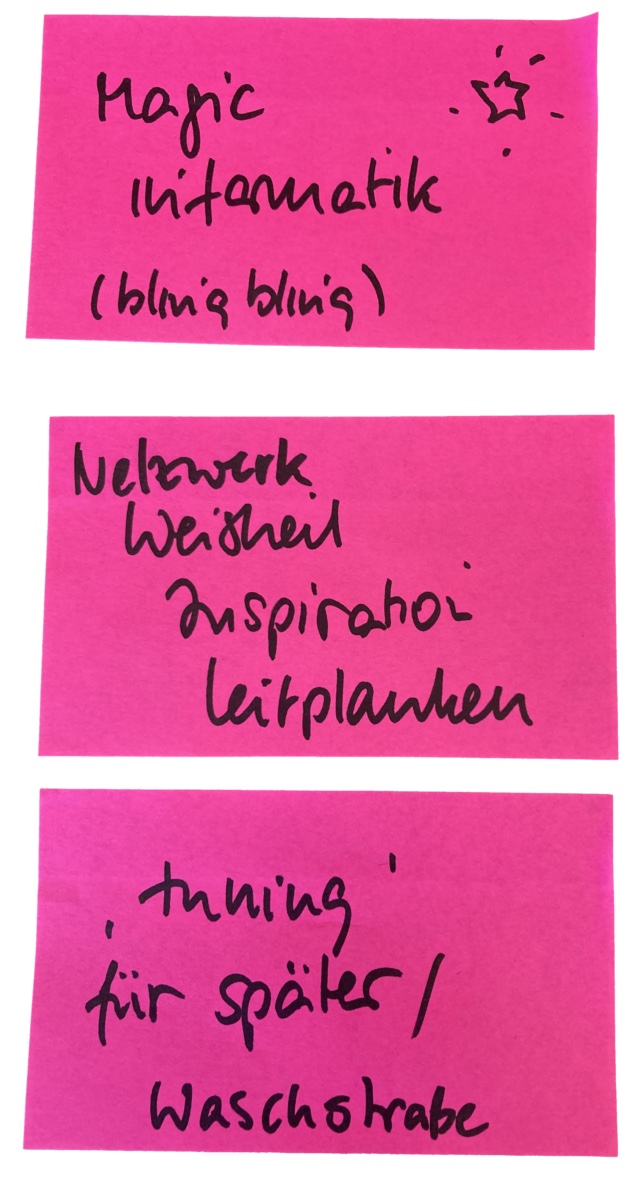 Magic
informatik
(bling bling)
Netzwerk
Weisheit
Inspiration
Leitplanken
‚tuning'
für später /
Waschstraße